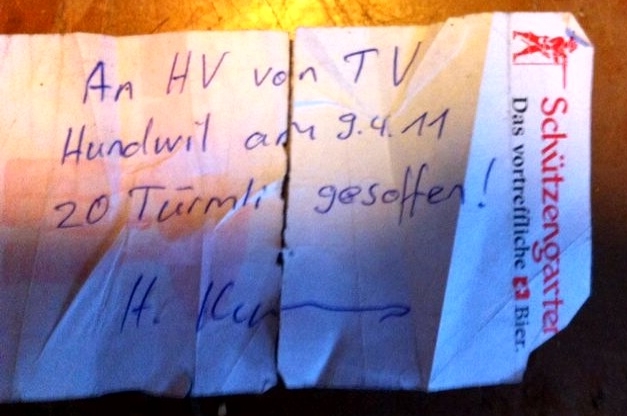 An HV von TV
Hundwil am 9.4.11
20 Türmli gesoffen!
H.
Schützengarten
Das vortreffliche Bier.